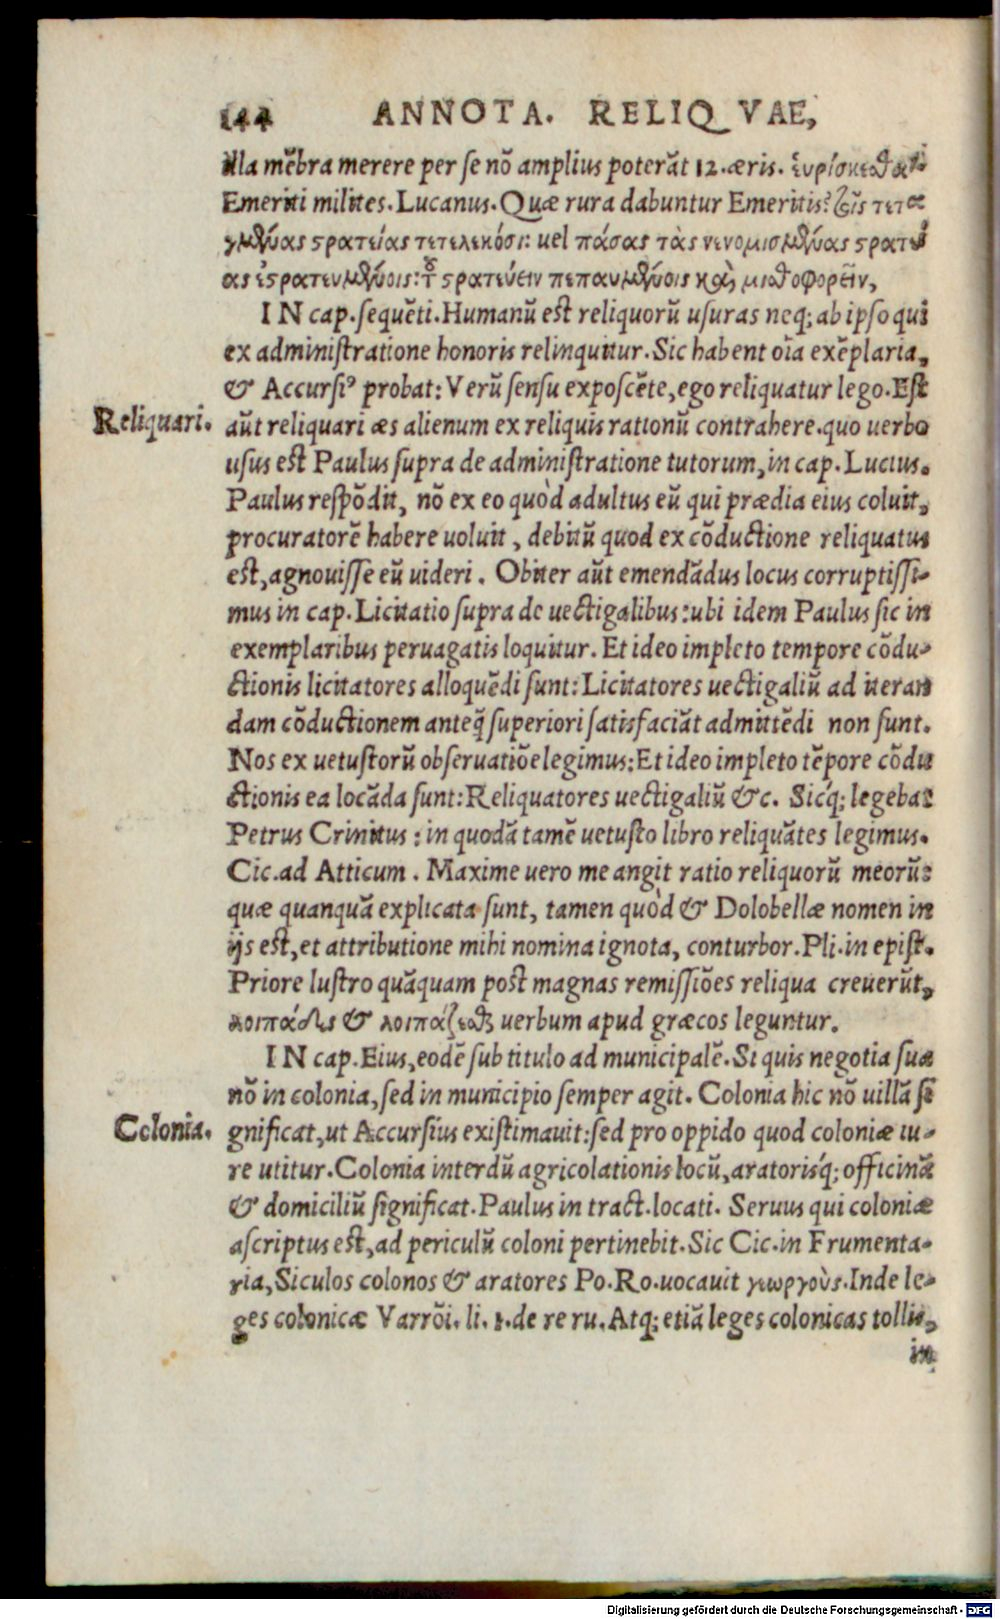 144 ANNOTA. RELIQVAE,
illa mẽbra merere per se nõ amplius poterãt 12. æris. εὑρίσκεσθαι.
Emeriti milites. Lucanus. Quæ rura dabuntur Emeritis?
στρατείας τετελεκόσι: uel πάσας τὰς νενομισμένας στρατεί
ας ἐστρατευμένοις: τοῦ στρατεύειν πεπαυμένοις καὶ μισθοφορεῖν,
IN cap. sequẽti. Humanũ est reliquorũ usuras neq; ab ipso qui
ex administratione honoris relinquitur. Sic habent oĩa exẽplaria,
& Accursi⁹ probat: Verũ sensu exposcẽte, ego reliquatur lego. Est
Reliquari. aũt reliquari æs alienum ex reliquis rationũ contrahere. quo uerbo
usus est Paulus supra de administratione tutorum, in cap. Lucius.
Paulus respõdit, nõ ex eo quòd adultus eũ qui prædia eius coluit,
procuratorẽ habere uoluit, debitũ quod ex cõductione reliquatus
est, agnouisse eũ uideri. Obiter aũt emendãdus locus corruptissi-
mus in cap. Licitatio supra de uectigalibus: ubi idem Paulus sic in
exemplaribus peruagatis loquitur. Et ideo impleto tempore cõdu-
ctionis licitatores alloquẽdi sunt: Licitatores uectigaliũ ad iteran
dam cõductionem anteq̃ superiori satisfaciãt admittẽdi non sunt.
Nos ex uetustorũ obseruatiõe legimus: Et ideo impleto tẽpore cõdu
ctionis ea locãda sunt: Reliquatores uectigaliũ &c. Sicq́; legebat
Petrus Crinitus: in quodã tamẽ uetusto libro reliquãtes legimus.
Cic. ad Atticum. Maxime uero me angit ratio reliquorũ meorũ:
quæ quanquã explicata sunt, tamen quòd & Dolobellæ nomen in
ijs est, et attributione mihi nomina ignota, conturbor. Pli. in epist.
Priore lustro quãquam post magnas remissiões reliqua creuerũt,
λοιπάδες & λοιπάζεσθαι uerbum apud græcos leguntur.
IN cap. Eius, eodẽ sub titulo ad municipalẽ. Si quis negotia sua
nõ in colonia, sed in municipio semper agit. Colonia hic nõ uillã si
Colonia. gnificat, ut Accursius existimauit: sed pro oppido quod coloniæ iu-
re utitur. Colonia interdũ agricolationis locũ, aratorisq́; officinã
& domiciliũ significat. Paulus in tract. locati. Seruus qui coloniæ
ascriptus est, ad periculũ coloni pertinebit. Sic Cic. in Frumenta-
ria, Siculos colonos & aratores Po. Ro. uocauit γεωργοὺς. Inde le-
ges colonicæ Varrõi. li. 1. de re ru. Atq; etiã leges colonicas tollis,
in
Digitalisierung gefördert durch die Deutsche Forschungsgemeinschaft - DFG